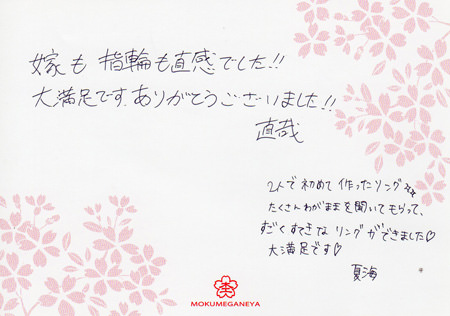 嫁も 指輪も直感でした!!
大満足です。ありがとうございました!!
直哉
2人で初めて作ったリング☆☆
たくさんわがままを聞いてもらって、
すごくすてきな リングができました♡
大満足です♡
夏海
MOKUMEGANEYA